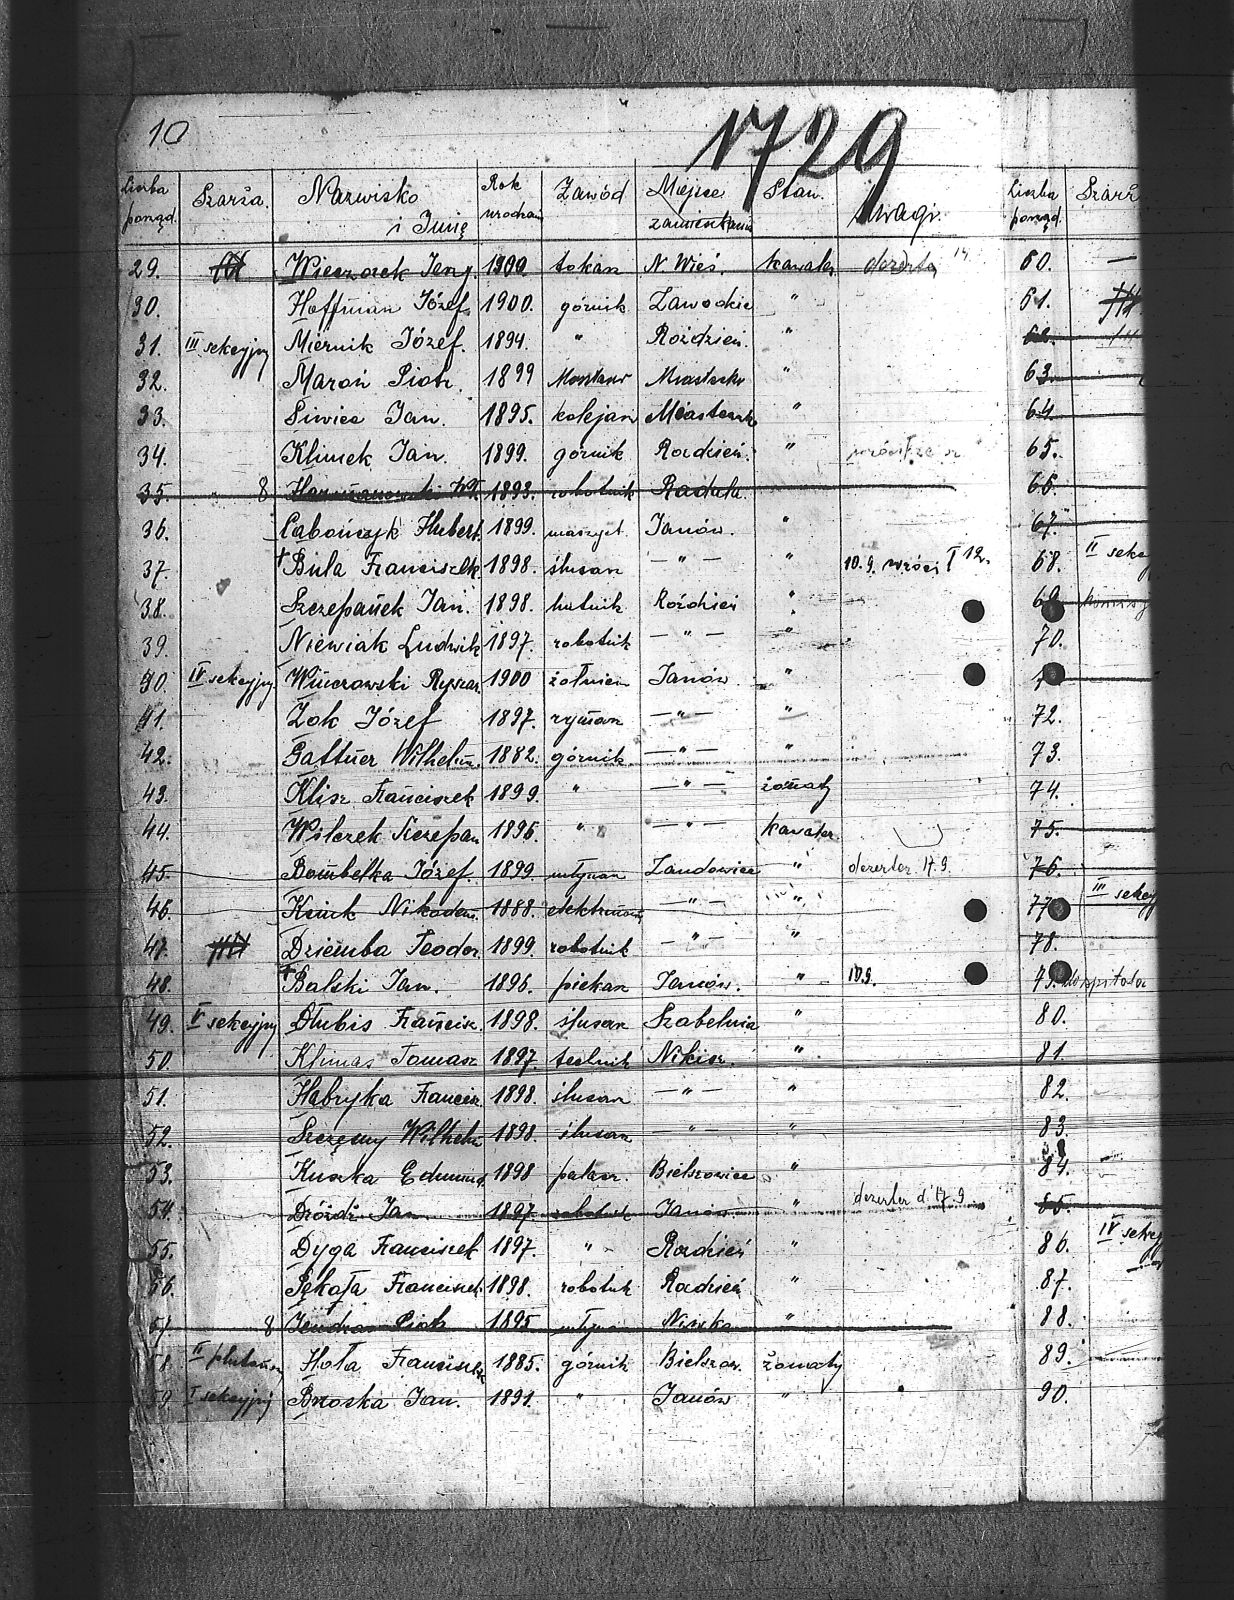 10
1729
Liczba porząd. Szarża. Nazwisko i Imię Rok urodzen Zawód Miejsce zamieszkania Stan. Uwagi. Liczba porząd. Szarż
29. Wieczorek Jerzy. 1900 tokarz N. Wieś. kawaler dezerter 14 60. —
30. Hoffman Józef. 1900. górnik Zawodzie " 61.
31. III sekcyjny Miernik Józef. 1894. " Roździeń. " 62.
32. Maroń Piotr. 1899 Monter " 63.
33. Siwiec Jan. 1895. kolejarz " 64
34. Klimek Jan. 1899. górnik Rozdzień. " 65.
35. 8 1898. robotnik Radula. 66.
36. Labończyk Hubert. 1899. maszyt. Janów. " 67.
37. † Bula Franciszek. 1898. ślusarz — " — " 10.9. wróci I 12. 68. II sekc
38. Szczepanek Jan. 1898. hutnik Roździeń " 69.
39. Niewiak Ludwik 1897. robotnik — " — " 70.
40. IV sekcyjny. Winczowski Ryszar 1900 żołnierz Janów "
41. Zok Józef 1897. rymarz — " — " 72.
42. Gattner Wilhelm. 1882. górnik — " — " 73.
43. Klisz Franciszek 1899. " — " — żonaty 74.
44. Wilczek Szczepan 1896. " — " — kawaler. 75.
45. Bombelka Józef. 1899 młynarz Zandowice " dezerter 17.9. 76.
46. Nikodem. 1888. — " — " 77 III sekcy
47. Dziemba Teodor. 1899. robotnik — " — " 78.
48. † Balski Jan. 1896. piekarz Janów. " 10.9. 79.
49. V sekcyjny Dłubis Francisz. 1898. ślusarz Szabelnia " 80.
50. Klimas Tomasz 1897. technik Nikisz. " 81.
51. Habryka Francisz. 1898. ślusarz — " — " 82.
52. Szczęsny Wilhelm 1898. ślusarz — " — " 83.
53. Kuska Edmund. 1898 palacz. Bielszowice " 84.
54. Dróżdż Jan. 1897. robotnik Janów. " dezerter d. 17.9. 85.
55. Dyga Franciszek 1897. " Rozdzień " 86. IV sekcy
56. Pękała Franciszek. 1898. robotnik Rozdzień " 87.
57. 8 Piotr 1895 młynarz " 88.
58. II plutonow Hoła Franciszek 1885. górnik Bielszow. żonaty 89.
59. I sekcyjny Brzoska Jan. 1891. " Janów " 90.